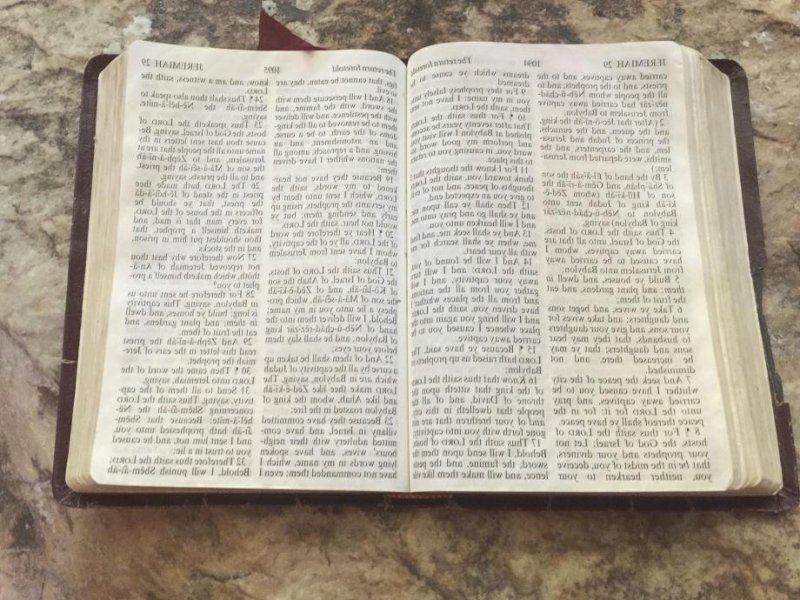 JEREMIAH 29 1094 The return foretold
carried away captives, and to the
priests, and to the prophets, and to
all the people whom Nĕb-ū-chăd-
nĕz´-zär had carried away captive
from Jerusalem to Babylon;
2 (After that Jĕc-ō-nī´-ah the king,
and the queen, and the eunuchs,
the princes of Judah and Jerusa-
lem, and the carpenters, and the
smiths, were departed from Jerusa-
lem;)
3 By the hand of Ĕl´-a-sah the son
of Shā´-phăn, and Gĕm-a-rī´-ah the
son of Hĭl-kī´-ah, (whom Zĕd-ĕ-
kī´-ah king of Judah sent unto
Babylon to Nĕb-ū-chăd-nĕz´-zär
king of Babylon) saying,
4 Thus saith the LORD of hosts,
the God of Israel, unto all that are
carried away captives, whom I
have caused to be carried away
from Jerusalem unto Babylon;
5 Build ye houses, and dwell in
them; and plant gardens, and eat
the fruit of them;
6 Take ye wives, and beget sons
and daughters; and take wives for
your sons, and give your daughters
to husbands, that they may bear
sons and daughters; that ye may
be increased there, and not
diminished.
7 And seek the peace of the city
whither I have caused you to be
carried away captives, and pray
unto the LORD for it: for in the
peace thereof shall ye have peace.
8 ¶ For thus saith the LORD of
hosts, the God of Israel; Let not
your prophets and your diviners,
that be in the midst of you, deceive
you, neither hearken to your
dreams which ye cause to be
dreamed.
9 For they prophesy falsely unto
you in my name: I have not sent
them, saith the LORD.
10 ¶ For thus saith the LORD,
That after seventy years be accom-
plished at Babylon I will visit you,
and perform my good word to-
ward you, in causing you to return
to this place.
11 For I know the thoughts that I
think toward you, saith the LORD,
thoughts of peace, and not of evil,
to give you an expected end.
12 Then shall ye call upon me,
and ye shall go and pray unto me,
and I will hearken unto you.
13 And ye shall seek me, and find
me, when ye shall search for me
with all your heart.
14 And I will be found of you,
saith the LORD: and I will turn
away your captivity, and I will
gather you from all the nations,
and from all the places whither I
have driven you, saith the LORD;
and I will bring you again into the
place whence I caused you to be
carried away captive.
15 ¶ Because ye have said, The
LORD hath raised us up prophets
in Babylon;
16 Know that thus saith the LORD
of the king that sitteth upon the
throne of David, and of all the
people that dwelleth in this city,
and of your brethren that are not
gone forth with you into captivity;
17 Thus saith the LORD of hosts;
Behold, I will send upon them the
sword, the famine, and the pesti-
lence, and will make them like vile
The return foretold 1095 JEREMIAH 29
figs, that cannot be eaten, they are
so evil.
18 And I will persecute them with
the sword, with the famine, and
with the pestilence, and will deliver
them to be removed to all the king-
doms of the earth, to be a curse,
and an astonishment, and an
hissing, and a reproach, among all
the nations whither I have driven
them:
19 Because they have not hear-
kened to my words, saith the
LORD, which I sent unto them by
my servants the prophets, rising up
early and sending them; but ye
would not hear, saith the LORD.
20 ¶ Hear ye therefore the word
of the LORD, all ye of the captivity,
whom I have sent from Jerusalem
to Babylon:
21 Thus saith the LORD of hosts,
the God of Israel, of Ahab the son
of Kŏl-āi´-ah, and of Zĕd-ĕ-kī´-ah
the son of Mā-a-sē´-iah, which pro-
phesy a lie unto you in my name;
Behold, I will deliver them into the
hand of Nĕb-ū-chăd-rĕz´-zär king
of Babylon; and he shall slay them
before your eyes;
22 And of them shall be taken up
a curse by all the captivity of Judah
which are in Babylon, saying, The
LORD make thee like Zĕd-ĕ-kī´-ah
and like Ahab, whom the king of
Babylon roasted in the fire;
23 Because they have committed
villany in Israel, and have com-
mitted adultery with their neigh-
bours' wives, and have spoken
lying words in my name, which I
have not commanded them; even I
know, and am a witness, saith the
LORD.
24 ¶ Thus shalt thou also speak to
Shĕm-a-ī´-ah the Nē-hĕl´-a-mīte,
saying,
25 Thus speaketh the LORD of
hosts, the God of Israel, saying, Be-
cause thou hast sent letters in thy
name unto all the people that are at
Jerusalem, and to Zĕph-a-nī´-ah
the son of Mā-a-sē´-iah the priest,
and to all the priests, saying,
26 The LORD hath made thee
priest in the stead of Jĕ-hoi´-a-dă
the priest, that ye should be
officers in the house of the LORD,
for every man that is mad, and
maketh himself a prophet, that
thou shouldest put him in prison,
and in the stocks.
27 Now therefore why hast thou
not reproved Jeremiah of Ăn´-a-
thŏth, which maketh himself a pro-
phet to you?
28 For therefore he sent unto us
in Babylon, saying, This captivity
is long: build ye houses, and dwell
in them; and plant gardens, and
eat the fruit of them.
29 And Zĕph-a-nī´-ah the priest
read this letter in the ears of Jere-
miah the prophet.
30 ¶ Then came the word of the
LORD unto Jeremiah, saying,
31 Send to all them of the cap-
tivity, saying, Thus saith the LORD
concerning Shĕm-a-ī´-ah the Nē-
hĕl´-a-mīte; Because that Shĕm-
a-ī´-ah hath prophesied unto you,
and I sent him not, and he caused
you to trust in a lie:
32 Therefore thus saith the LORD;
Behold, I will punish Shĕm-a-ī´-ah